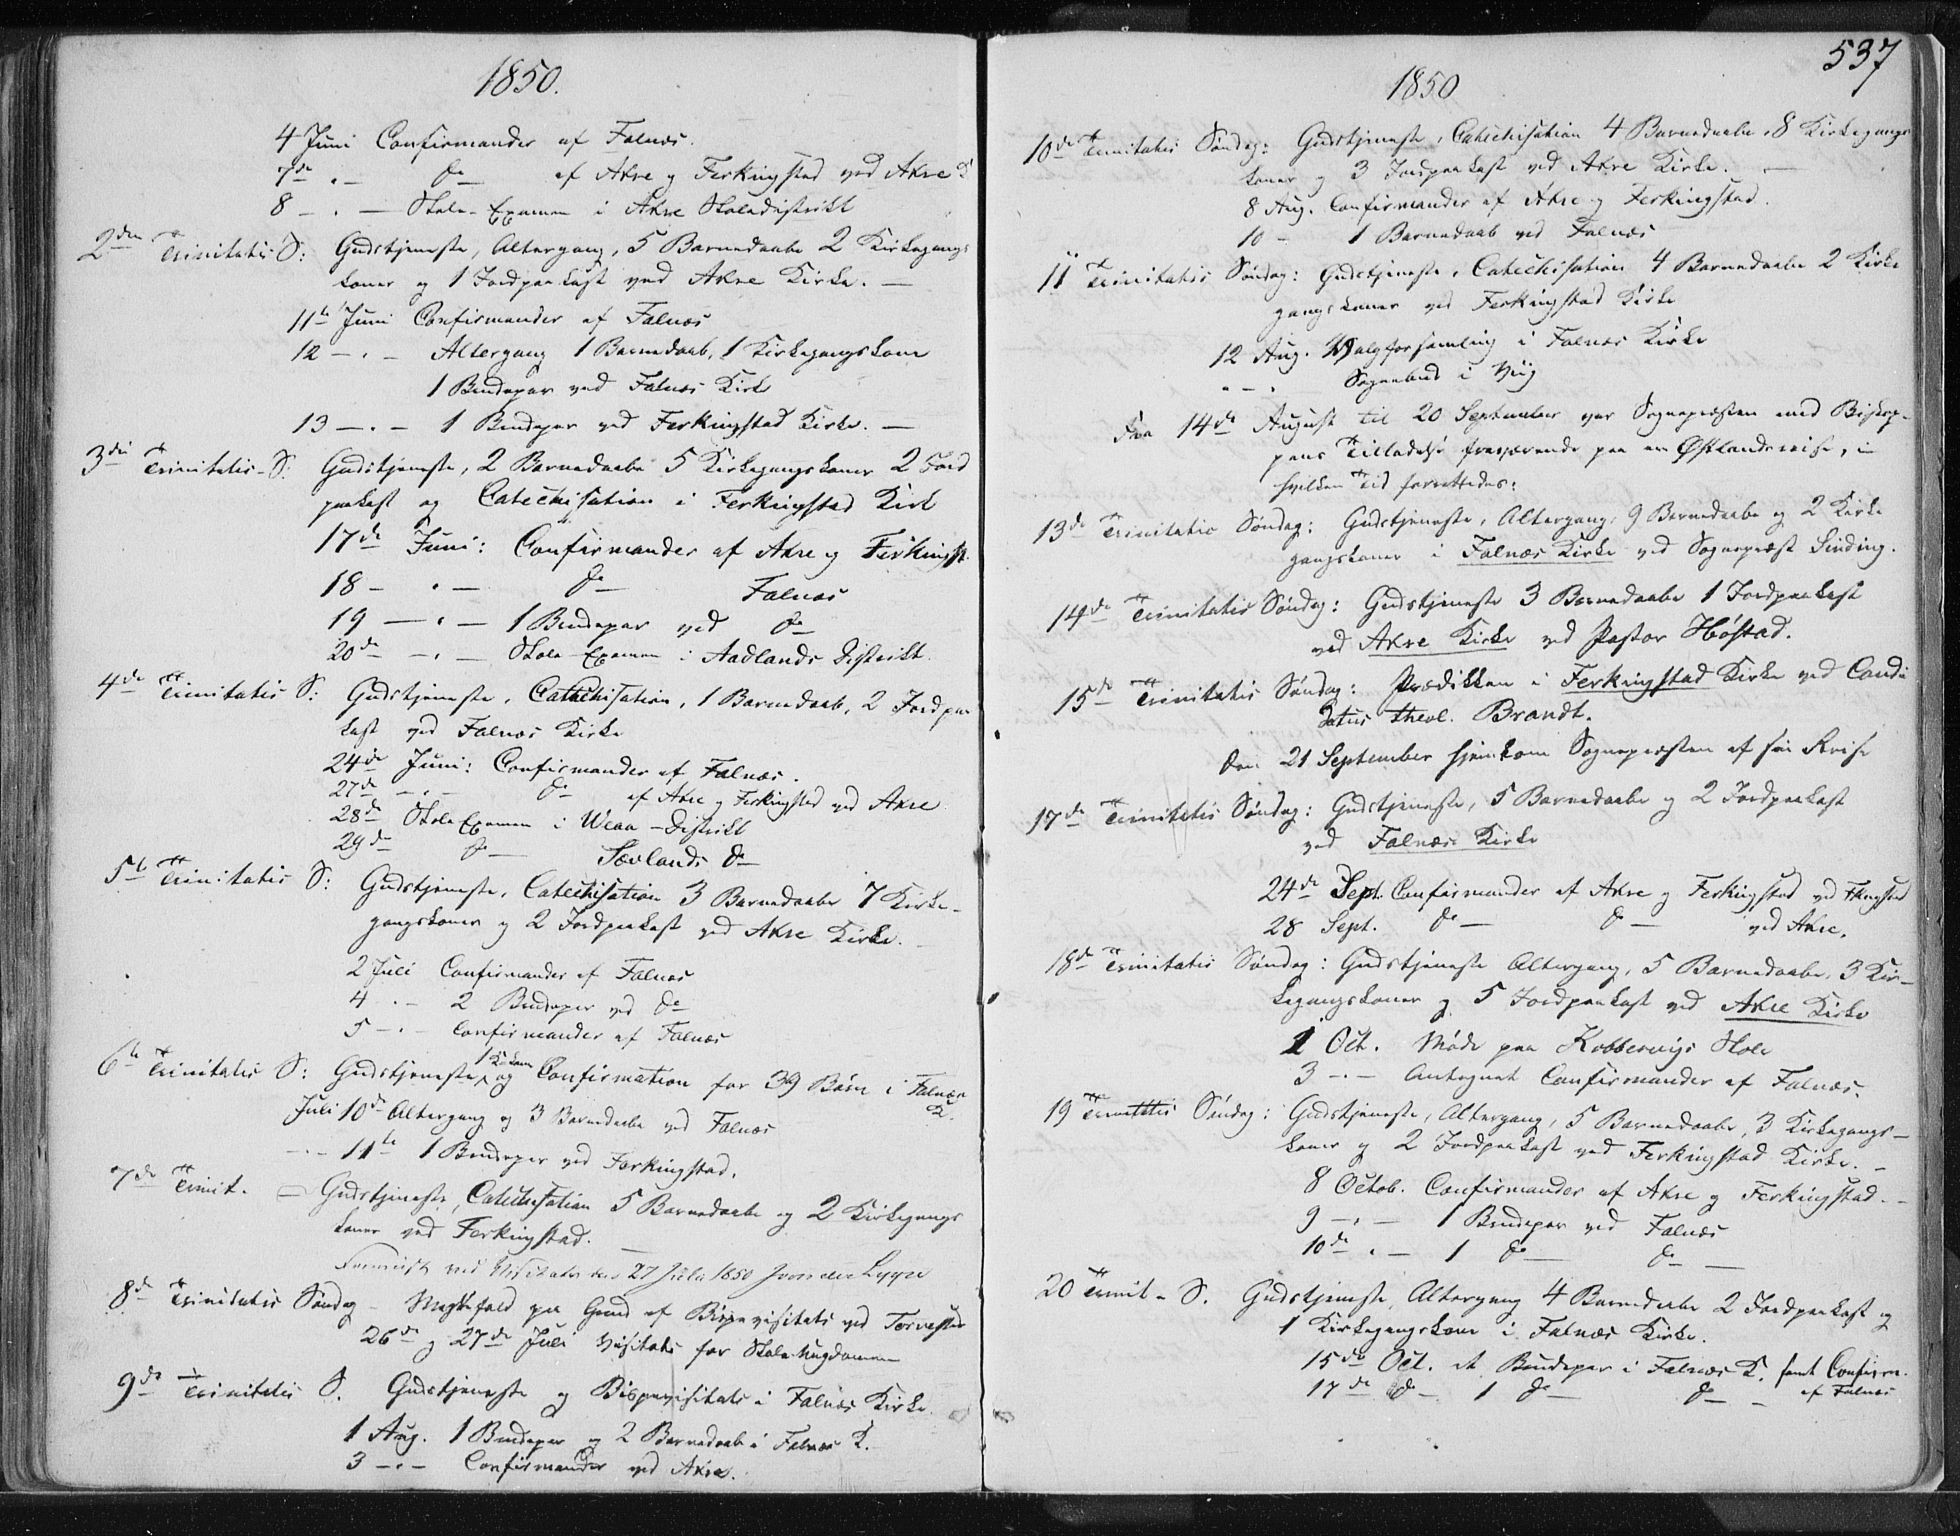 1850.
4 Juni Confirmander af Falnæs.
7de „ — do — af Akre og Ferkingstad ved Akre K
8 — „ — Skole-Examen i Akre Skoledistrikt
2den Trinitatis S: Gudstjeneste, Altergang, 5 Barnedaabe 2 Kirkegangs
koner og 1 Jordpaakast ved Akre Kirke. —
11te Juni Confirmander af Falnæs
12 — „ — Altergang 1 Barnedaab, 1 Kirkegangskone
1 Brudepar ved Falnæs Kirke
13 — „ — 1 Brudepar ved Ferkingstad Kirke. —
3die Trinitatis - S: Gudstjeneste, 2 Barnedaabe 5 Kirkegangskoner 2 Jord
paakast og Catechisation i Ferkingstad Kirke
17de Juni: Confirmander af Akre og Ferkingst.
18 — „ — do — Falnæs
19 — „ — 1 Brudepar ved do —
20de — „ — Skole-Examen i Aadlands Distrikt.
4de Trinitatis S: Gudstjeneste, Catechisation, 1 Barnedaab, 2 Jordpaa
kast ved Falnæs Kirke
24de Juni: Confirmander af Falnæs.
27de — „ — do — af Akre og Ferkingstad ved Akre
28de Skole Examen i Weaa - Distrikt
29de do — Sævlands do —
5te Trinitatis S: Gudstjeneste, Catechisation 3 Barnedaabe 7 Kirke-
gangskoner og 2 Jordpaakast ved Akre Kirke.
2 Juli Confirmander af Falnæs
4 „ — 2 Brudepar ved do
5 — „ — Confirmander af Falnæs
6te Trinitatis S: Gudstjeneste, 1 K. Kone og Confirmation for 39 Børn i Falnæs
K.
Juli 10de Altergang og 3 Barnedaabe ved Falnæs
— „ — 11te 1 Brudepar ved Ferkingstad.
7de Trinit. — Gudstjeneste, Catechisation 5 Barnedaabe og 2 Kirkegangs
koner ved Ferkingstad.
Fremvist ved Visitats den 27 Julii 1850 Jvon der Lippe
8de Trinitatis Søndag — Messefald paa Grund af Bispevisitats ved Torvestad
26de og 27de Juli Visitats for Skoleungdommen
9de Trinitatis S. Gudstjeneste og Bispevisitats i Falnæs Kirke
1 Aug. 1 Brudepar og 2 Barnedaabe i Falnæs K.
3 — „ — Confirmander ved Akre.
537
1850
10de Trinitatis Søndag: Gudstjeneste, Catechisation 4 Barnedaabe, 8 Kirkegangs
koner og 3 Jordpaakast ved Akre Kirke. —
8 Aug. Confirmander af Akre og Ferkingstad.
10 — 1 Barnedaab ved Falnæs
11 Trinitatis Søndag: Gudstjeneste, Catechisation 4 Barnedaabe 2 Kirke
gangskoner ved Ferkingstad Kirke
12 Aug. Valgforsamling i Falnæs Kirke
„ — „ Sognebud i Viig
Fra 14de August til 20 September var Sognepræsten med Biskop-
pens Tilladelse fraværende paa en Østlandsreise, i
hvilken Tid forrettedes:
13de Trinitatis Søndag: Gudstjeneste, Altergang, 9 Barnedaabe og 2 Kirke
gangskoner i Falnæs Kirke ved Sognepræst Sinding.
14de Trinitatis Søndag: Gudstjeneste 3 Barnedaabe 1 Jordpaakast
ved Akre Kirke ved Pastor Høstad.
15de Trinitatis Søndag: Prædiken i Ferkingstad Kirke ved Candi
datus theol. Brandt.
Den 21 September hjemkom Sognepræsten af sin Reise
17de Trinitatis Søndag: Gudstjeneste, 5 Barnedaabe og 2 Jordpaakast
ved Falnæs Kirke
24de Sept. Confirmander af Akre og Ferkingstad ved Fkingstad
28 Sept. do — do — ved Akre.
18de Trinitatis Søndag: Gudstjeneste Altergang, 5 Barnedaabe, 3 Kir-
kegangskoner og 5 Jordpaakast ved Akre Kirke
1 Oct. Møde paa Kobbervigs Skole
3 — „ — Antegnet Confirmander af Falnæs.
19 Trinitatis Søndag: Gudstjeneste, Altergang, 5 Barnedaabe, 3 Kirkegangs-
koner og 2 Jordpaakast ved Ferkingstad Kirke. —
8 Octob. Confirmander af Akre og Ferkingstad. —
9 — „ — 1 Brudepar ved Falnæs
10de „ — 1 do — do —
20 Trinit - S. Gudstjeneste, Altergang 4 Barnedaabe 2 Jordpaakast og
1 Kirkegangskone i Falnæs Kirke.
15de Oct. et Brudepar i Falnæs K. samt Confirm.
17de do — 1 do — do — af Falnæs